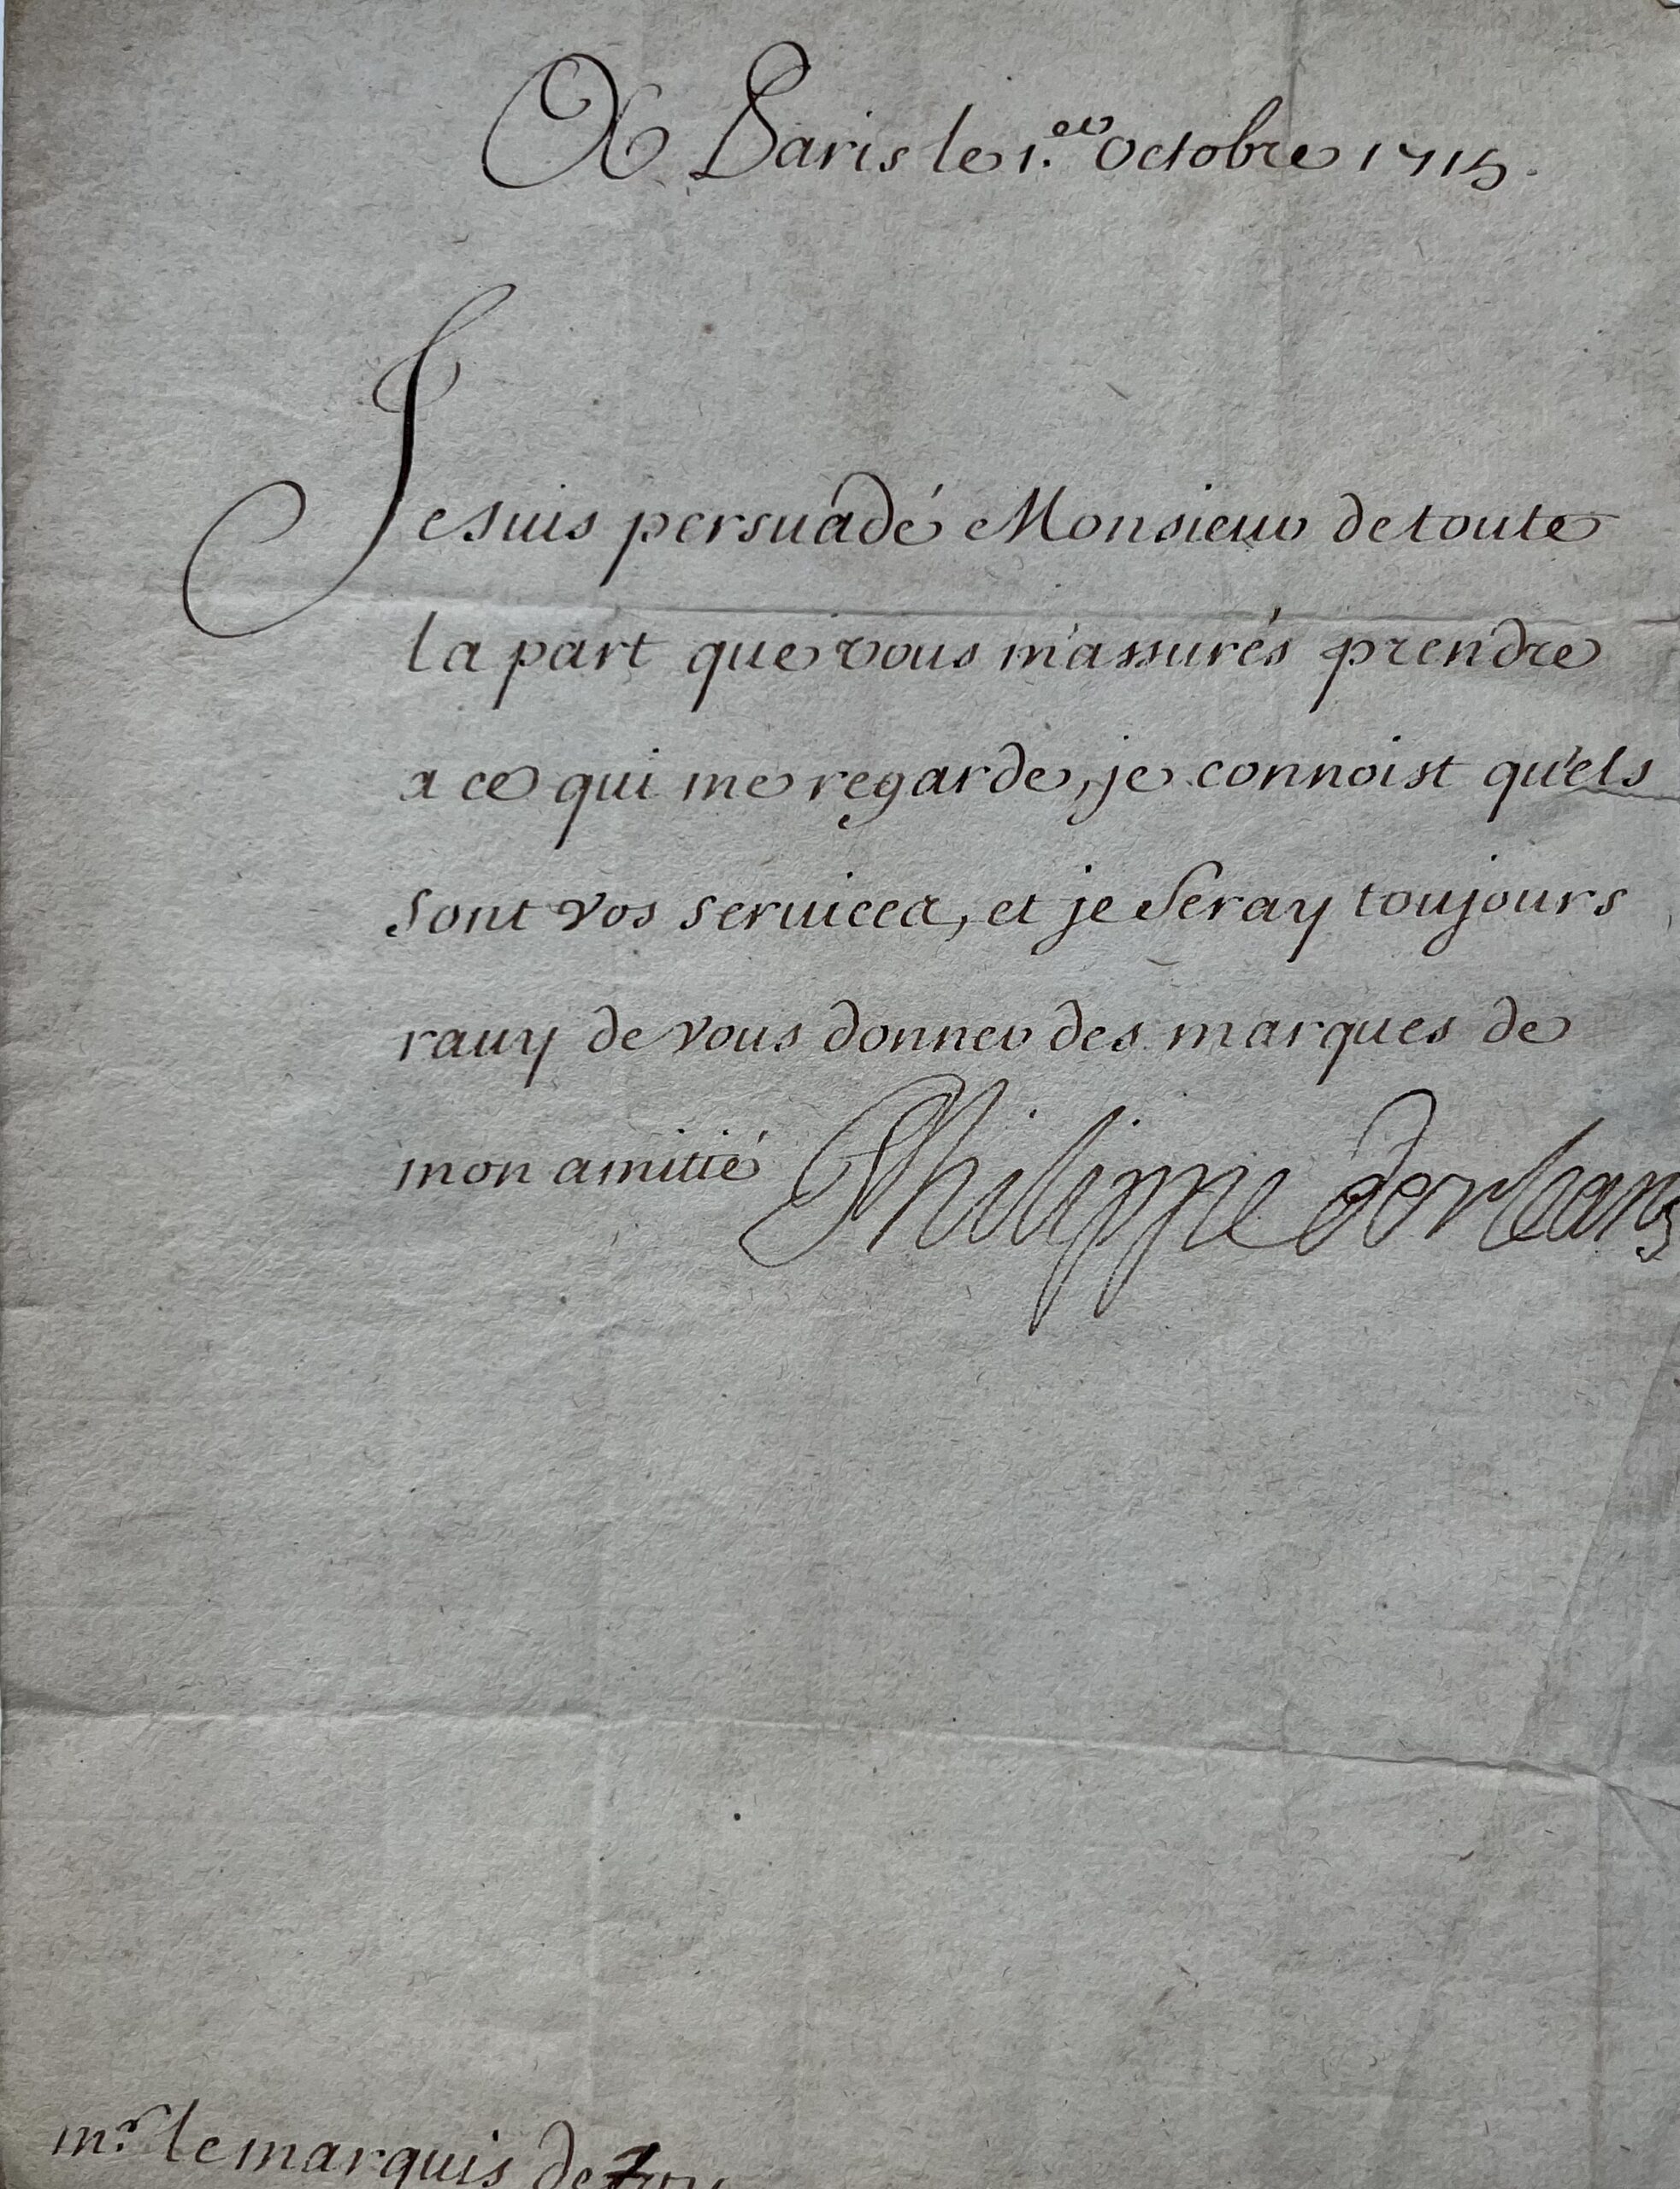 A Paris le 1.er Octobre 1715.
Je suis persuadé Monsieur de toute
la part que vous m'assurés prendre
a ce qui me regarde, je connoist qu'els
sont vos seruices, et je seray toujours
rauy de vous donner des marques de
mon amitié Philippe dorleans
mr. le marquis de